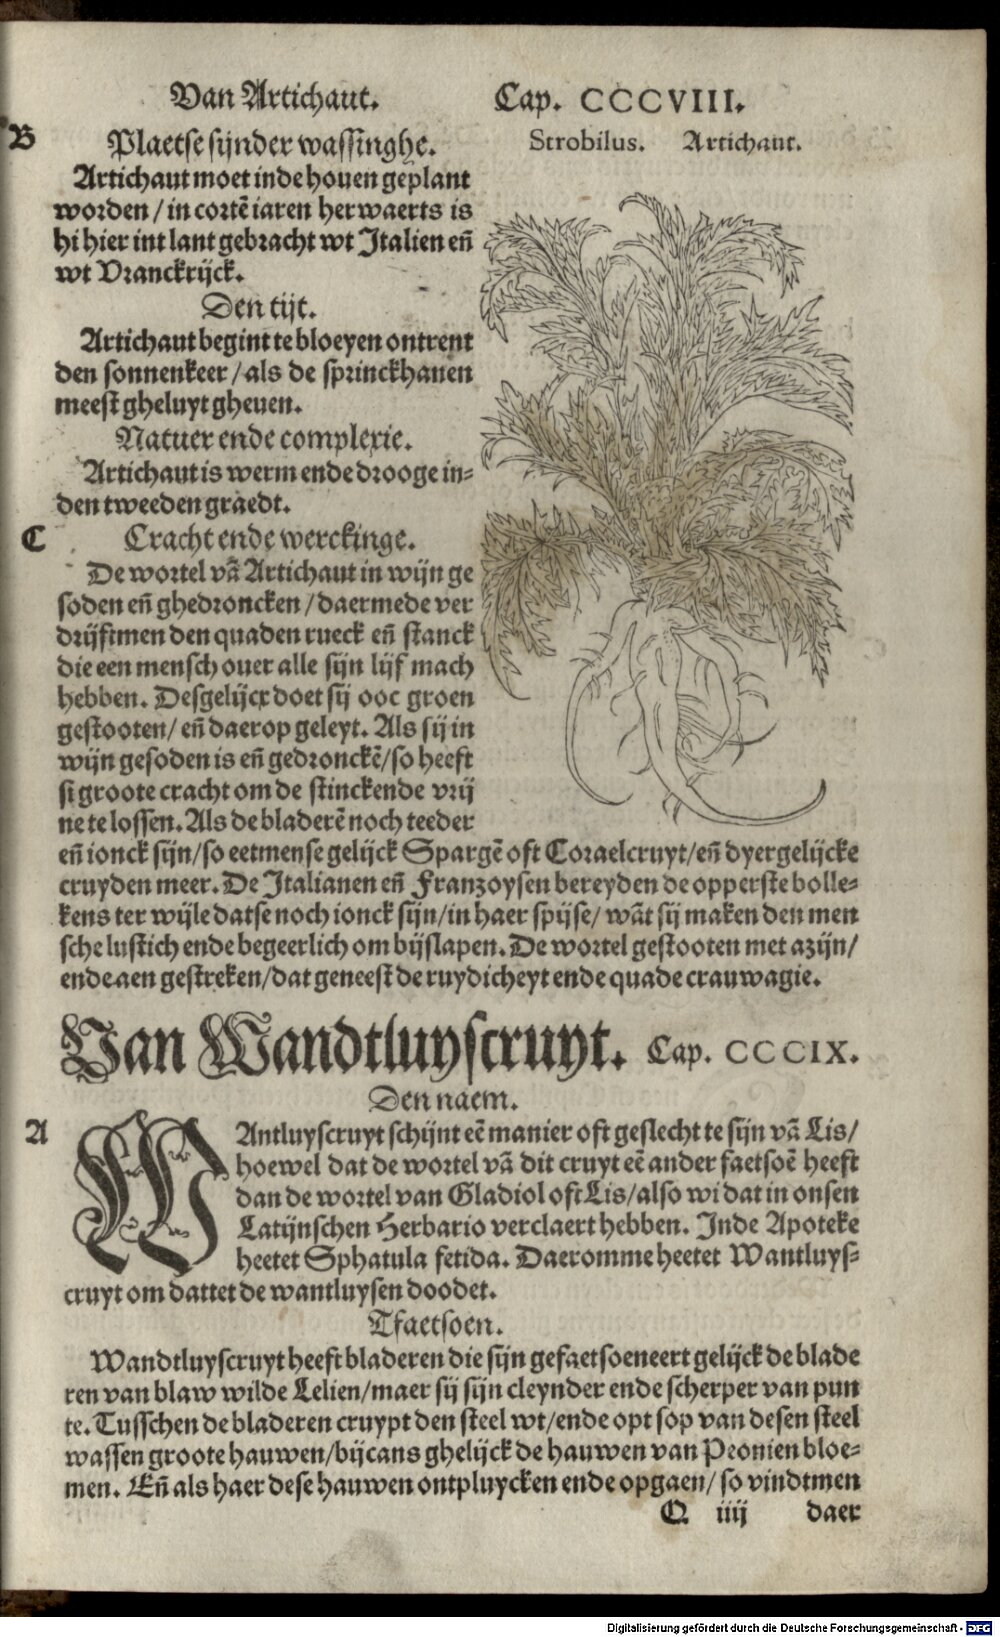 Van Artichaut. Cap. CCCVIII.
Strobilus. Artichaut.
B
Plaetse sijnder wassinghe.
Artichaut moet inde houen geplant
worden / in cortē iaren herwaerts is
hi hier int lant gebracht wt Italien en̄
wt Vranckrijck.
Den tijt.
Artichaut begint te bloeyen ontrent
den sonnenkeer / als de sprinckhanen
meest gheluyt gheuen.
Natuer ende complexie.
Artichaut is werm ende drooge in-
den tweeden graedt.
C
Cracht ende werckinge.
De wortel vā Artichaut in wijn ge
soden en̄ ghedroncken / daermede ver
drijftmen den quaden rueck en̄ stanck
die een mensch ouer alle sijn lijf mach
hebben. Desgelijcx doet sij ooc groen
gestooten / en̄ daerop geleyt. Als sij in
wijn gesoden is en̄ gedronckē / so heeft
si groote cracht om de stinckende vrij
ne te lossen. Als de bladerē noch teeder
en̄ ionck sijn / so eetmense gelijck Spargē oft Coraelcruyt / en̄ dyergelijcke
cruyden meer. De Italianen en̄ Franzoysen bereyden de opperste bolle-
kens ter wijle datse noch ionck sijn / in haer spijse / wāt sij maken den men
sche lustich ende begeerlich om bijslapen. De wortel gestooten met azijn /
ende aen gestreken / dat geneest de ruydicheyt ende quade crauwagie.
Van Wandtluyscruyt. Cap. CCCIX.
Den naem.
A
WAntluyscruyt schijnt eē manier oft geslecht te sijn vā Lis /
hoewel dat de wortel vā dit cruyt eē ander faetsoē heeft
dan de wortel van Gladiol oft Lis / also wi dat in onsen
Latijnschen Herbario verclaert hebben. Inde Apoteke
heetet Sphatula fetida. Daeromme heetet Wantluys-
cruyt om dattet de wantluysen doodet.
Tfaetsoen.
Wandtluyscruyt heeft bladeren die sijn gefaetsoeneert gelijck de blade
ren van blaw wilde Lelien / maer sij sijn cleynder ende scherper van pun
te. Tusschen de bladeren cruypt den steel wt / ende opt sop van desen steel
wassen groote hauwen / bijcans ghelijck de hauwen van Peonien bloe-
men. En̄ als haer dese hauwen ontpluycken ende opgaen / so vindtmen
Q iiij daer
Digitalisierung gefördert durch die Deutsche Forschungsgemeinschaft - DFG